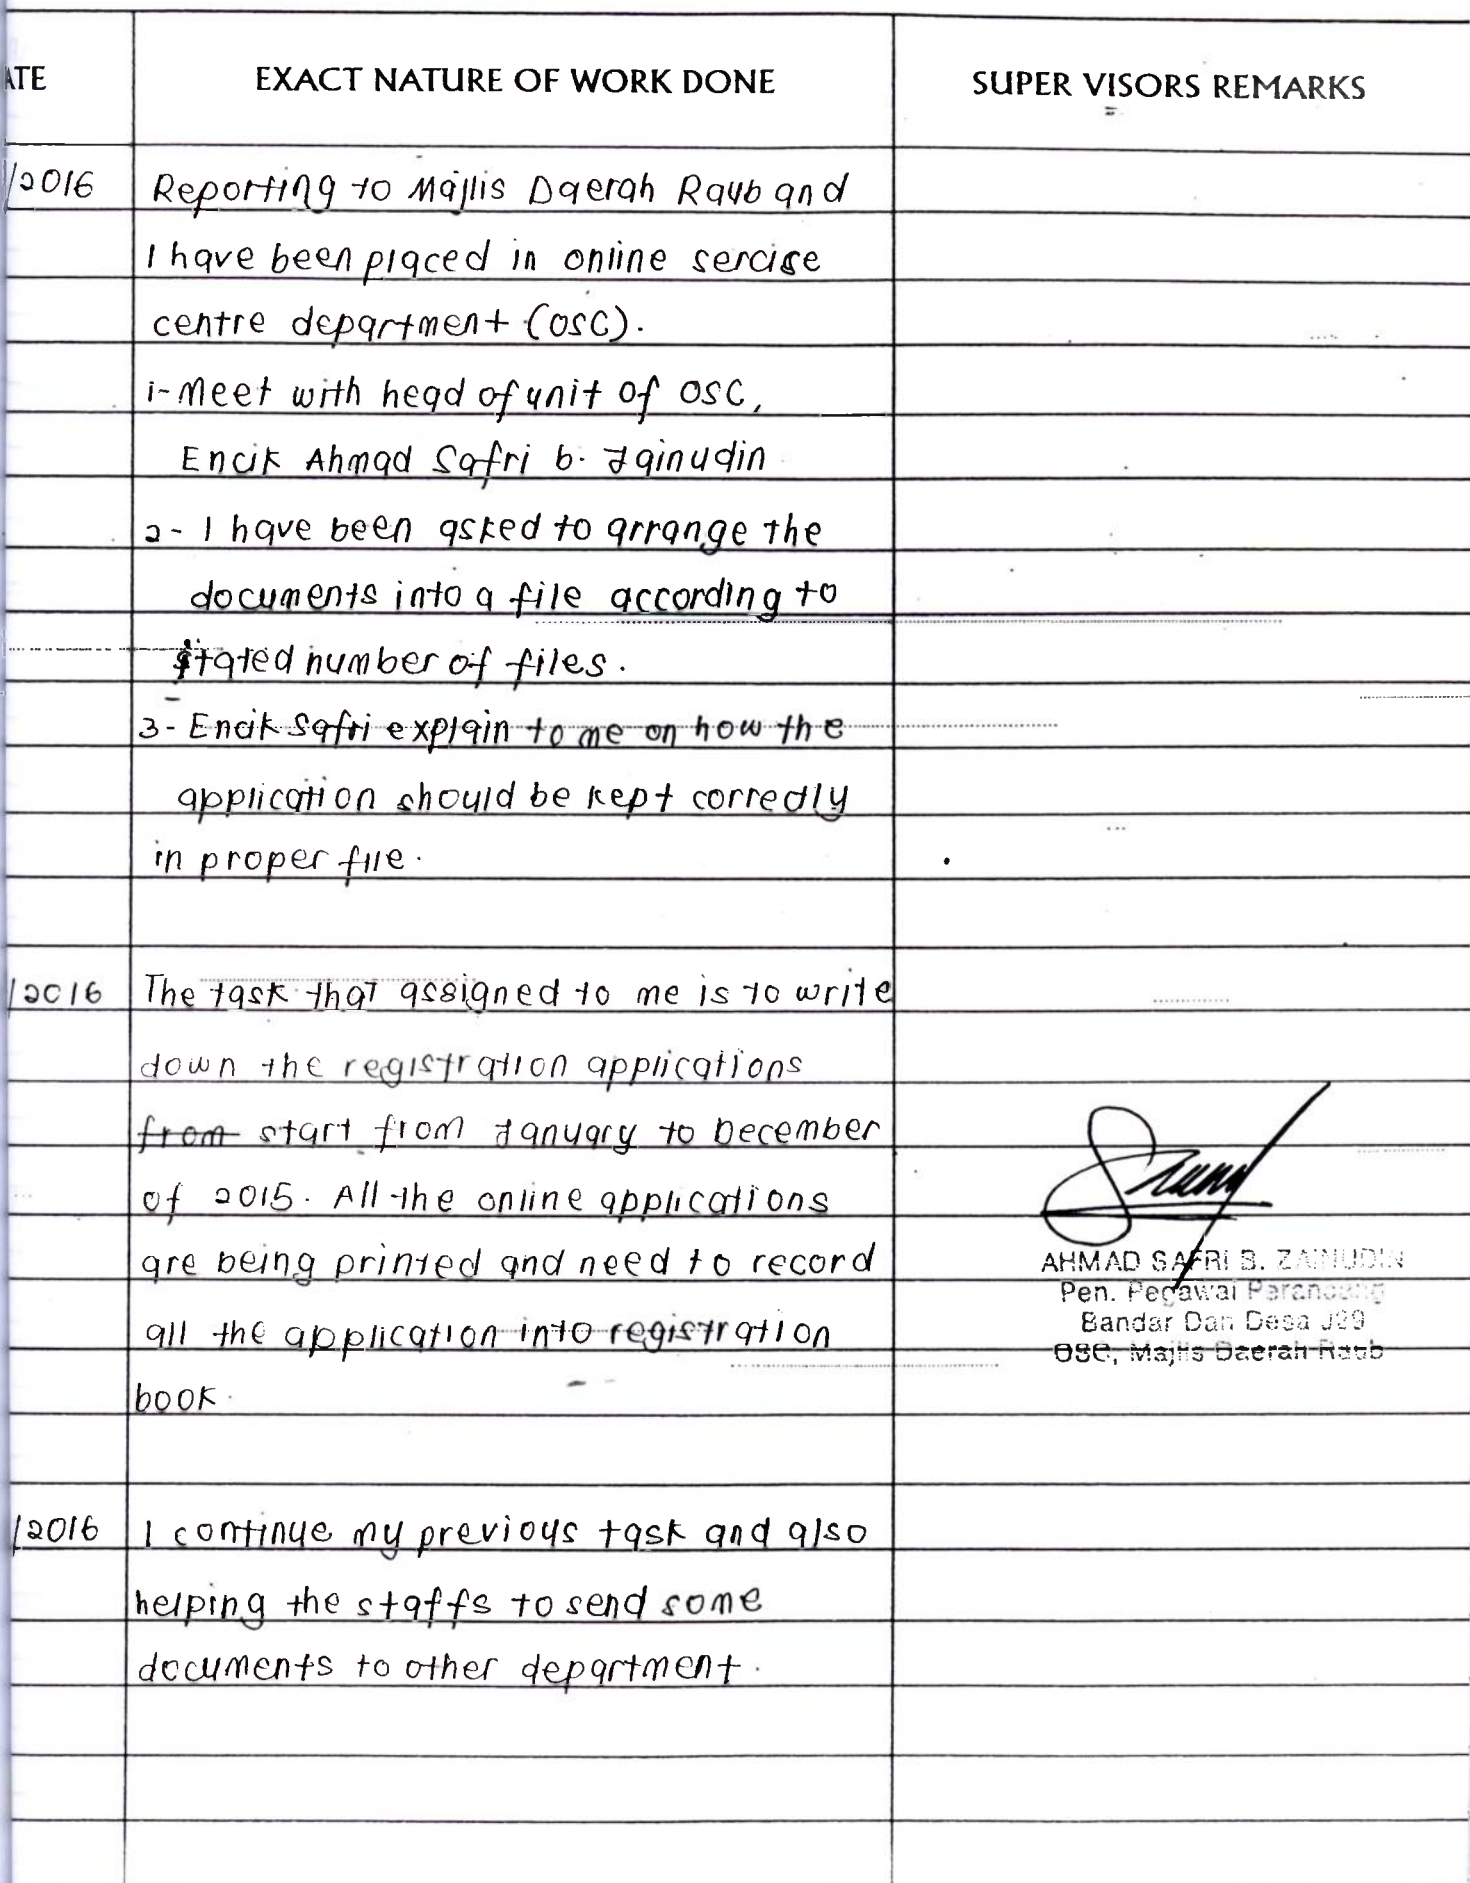 ATE EXACT NATURE OF WORK DONE SUPER VISORS REMARKS
/2016 Reporting to Majlis Daerah Raub and
I have been placed in online sercise
centre department (OSC).
1- Meet with head of unit of OSC,
Encik Ahmad Safri b. Zainudin
2- I have been asked to arrange the
documents into a file according to
stated number of files.
3- Encik Safri explain to me on how the
application should be kept correctly
in proper file.
/2016 The task that assigned to me is to write
down the registration applications
from start from January to December
of 2015. All the online applications
are being printed and need to record
all the application into registration
book.
AHMAD SAFRI B. ZAINUDIN
Pen. Pegawai Perancang
Bandar Dan Desa J29
OSC, Majlis Daerah Raub
/2016 I continue my previous task and also
helping the staffs to send some
documents to other department.